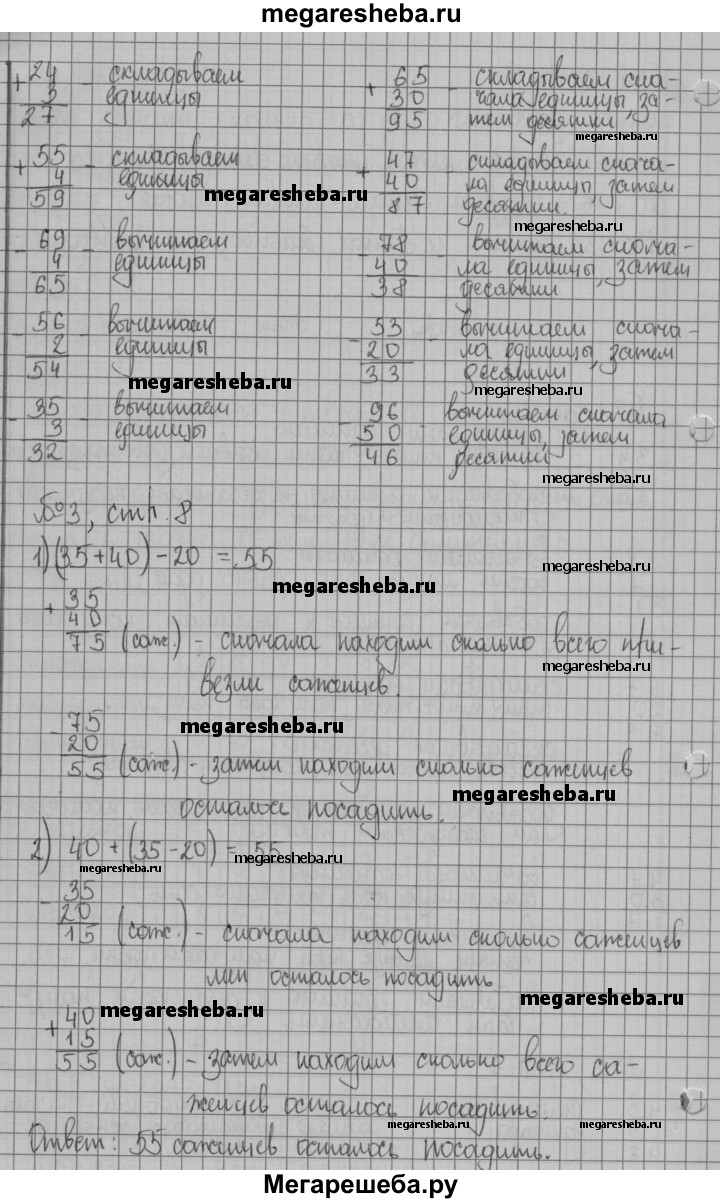 megaresheba.ru
+ 24 - складываем
3 единицы
27
+ 65 - складываем сна-
30 чала единицы, за-
95 тем десятки
megaresheba.ru
+ 55 - складываем
4 единицы
59
megaresheba.ru
+ 47 - складываем снача-
40 ла единицы, затем
87 десятки.
megaresheba.ru
- 69 - вычитаем
4 единицы
65
- 78 - вычитаем снача-
40 ла единицы, затем
38 десятки
megaresheba.ru
- 56 - вычитаем
2 единицы
54
megaresheba.ru
- 53 - вычитаем снача-
20 ла единицы, затем
33 десятки
megaresheba.ru
- 35 - вычитаем
3 единицы
32
- 96 - вычитаем сначала
50 единицы, затем
46 десятки
megaresheba.ru
№3, стр. 8
1) (35+40) - 20 = 55
megaresheba.ru
megaresheba.ru
+ 35
40
75 (саж.) - сначала находим сколько всего при-
megaresheba.ru
везли саженцев.
- 75
megaresheba.ru
20
55 (саж.) - затем находим сколько саженцев
megaresheba.ru
осталось посадить.
2) 40 + (35 - 20) = 55
megaresheba.ru
megaresheba.ru
- 35
20
15 (саж.) - сначала находим сколько саженцев
лип осталось посадить
megaresheba.ru
+ 40
megaresheba.ru
15
55 (саж.) - затем находим сколько всего са-
женцев осталось посадить.
megaresheba.ru
megaresheba.ru
Ответ: 55 саженцев осталось посадить.
Мегарешеба.ру